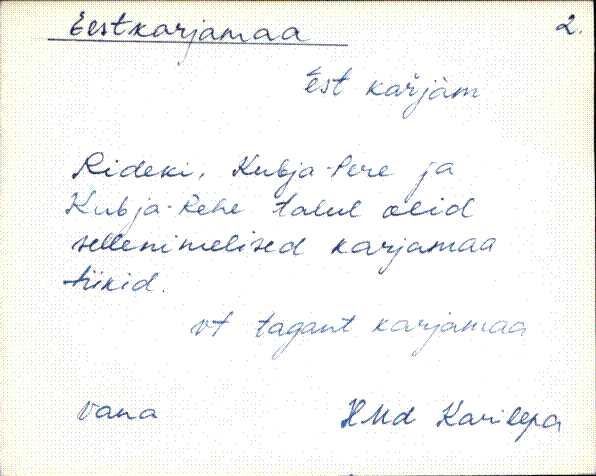 Eestkarjamaa 2.
Est karjam
Rideki, Kubja-Pere ja
Kubja-Rehe talul olid
sellenimelised karjamaa
tükid.
vt tagant karjamaa
vana HMd Karilepa